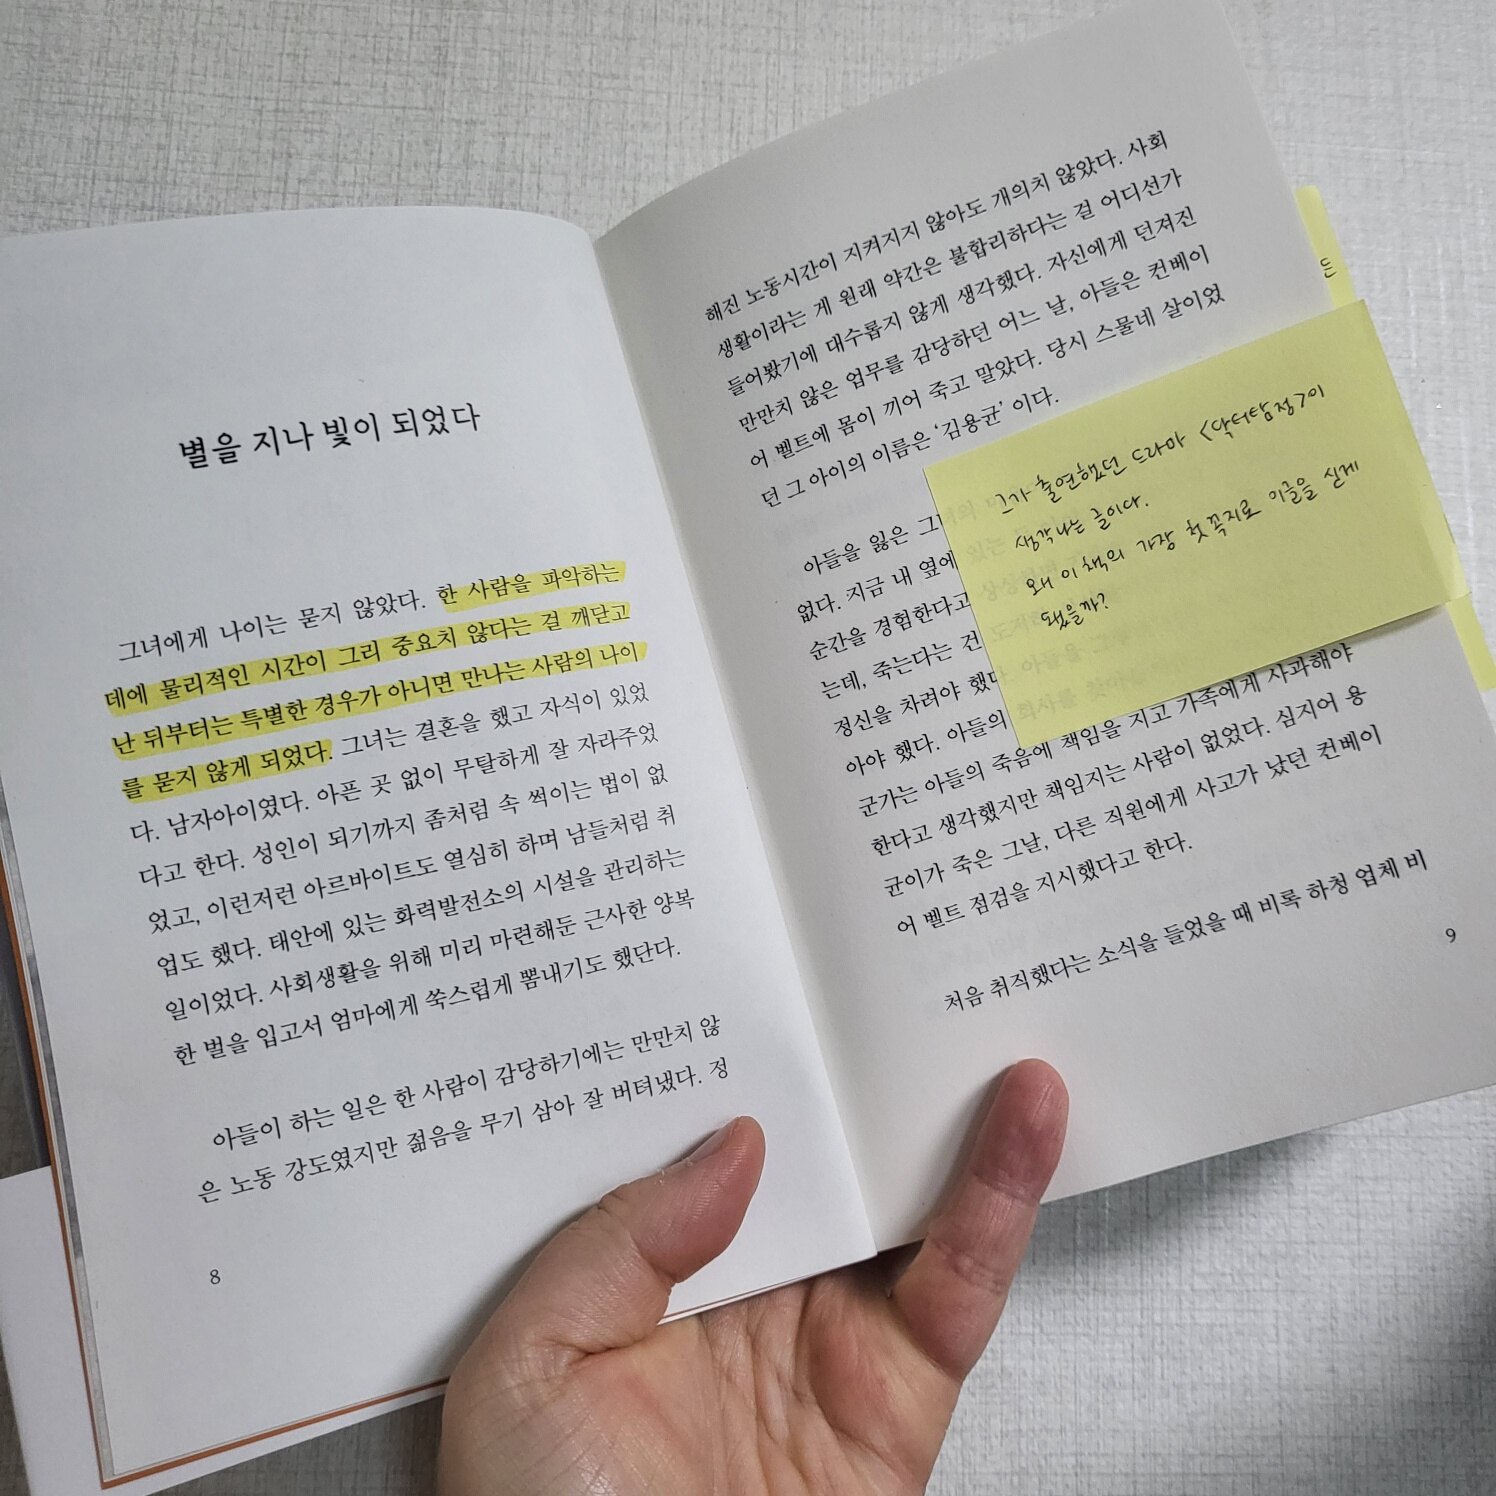 별을 지나 빛이 되었다
그녀에게 나이는 묻지 않았다. 한 사람을 파악하는
데에 물리적인 시간이 그리 중요치 않다는 걸 깨닫고
난 뒤부터는 특별한 경우가 아니면 만나는 사람의 나이
를 묻지 않게 되었다. 그녀는 결혼을 했고 자식이 있었
다. 남자아이였다. 아픈 곳 없이 무탈하게 잘 자라주었
다고 한다. 성인이 되기까지 좀처럼 속 썩이는 법이 없
었고, 이런저런 아르바이트도 열심히 하며 남들처럼 취
업도 했다. 태안에 있는 화력발전소의 시설을 관리하는
일이었다. 사회생활을 위해 미리 마련해둔 근사한 양복
한 벌을 입고서 엄마에게 쑥스럽게 뽐내기도 했단다.
아들이 하는 일은 한 사람이 감당하기에는 만만치 않
은 노동 강도였지만 젊음을 무기 삼아 잘 버텨냈다. 정
8
해진 노동시간이 지켜지지 않아도 개의치 않았다. 사회
생활이라는 게 원래 약간은 불합리하다는 걸 어디선가
들어봤기에 대수롭지 않게 생각했다. 자신에게 던져진
만만치 않은 업무를 감당하던 어느 날, 아들은 컨베이
어 벨트에 몸이 끼어 죽고 말았다. 당시 스물네 살이었
던 그 아이의 이름은 '김용균'이다.
아들을 잃은 그
없다. 지금 내 옆에
순간을 경험한다고
는데, 죽는다는 건
정신을 차려야 했다
아야 했다. 아들의
군가는 아들의 죽음에 책임을 지고 가족에게 사과해야
한다고 생각했지만 책임지는 사람이 없었다. 심지어 용
균이가 죽은 그날, 다른 직원에게 사고가 났던 컨베이
어 벨트 점검을 지시했다고 한다.
처음 취직했다는 소식을 들었을 때 비록 하청 업체 비
9
그가 출연했던 드라마 <닥터탐정>이
생각나는 글이다.
왜 이 책의 가장 첫 꼭지로 이글을 싣게
됐을까?
든